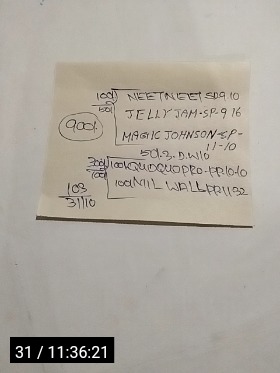 100/ NEETNEET SP.9.10
50/ JELLY JAM-SP-9 16
900/. MAGIC JOHNSON-SP-
11-10
50/.3.D.W10
300/ 100/ QUOQUOPRO-PR10-10
100/ 100/ NIL WALL PR1132
103
31110
31 / 11:36:21